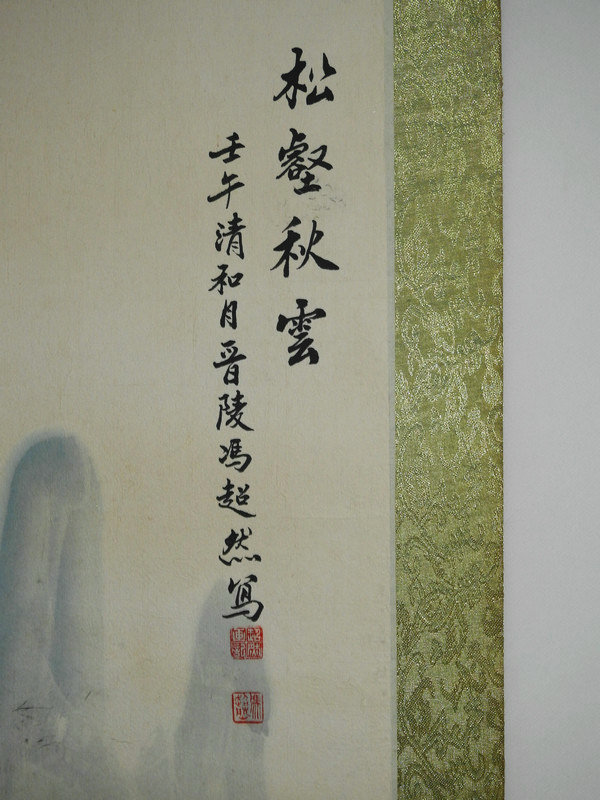 松壑秋雲
壬午清和月晋陵馮超然寫